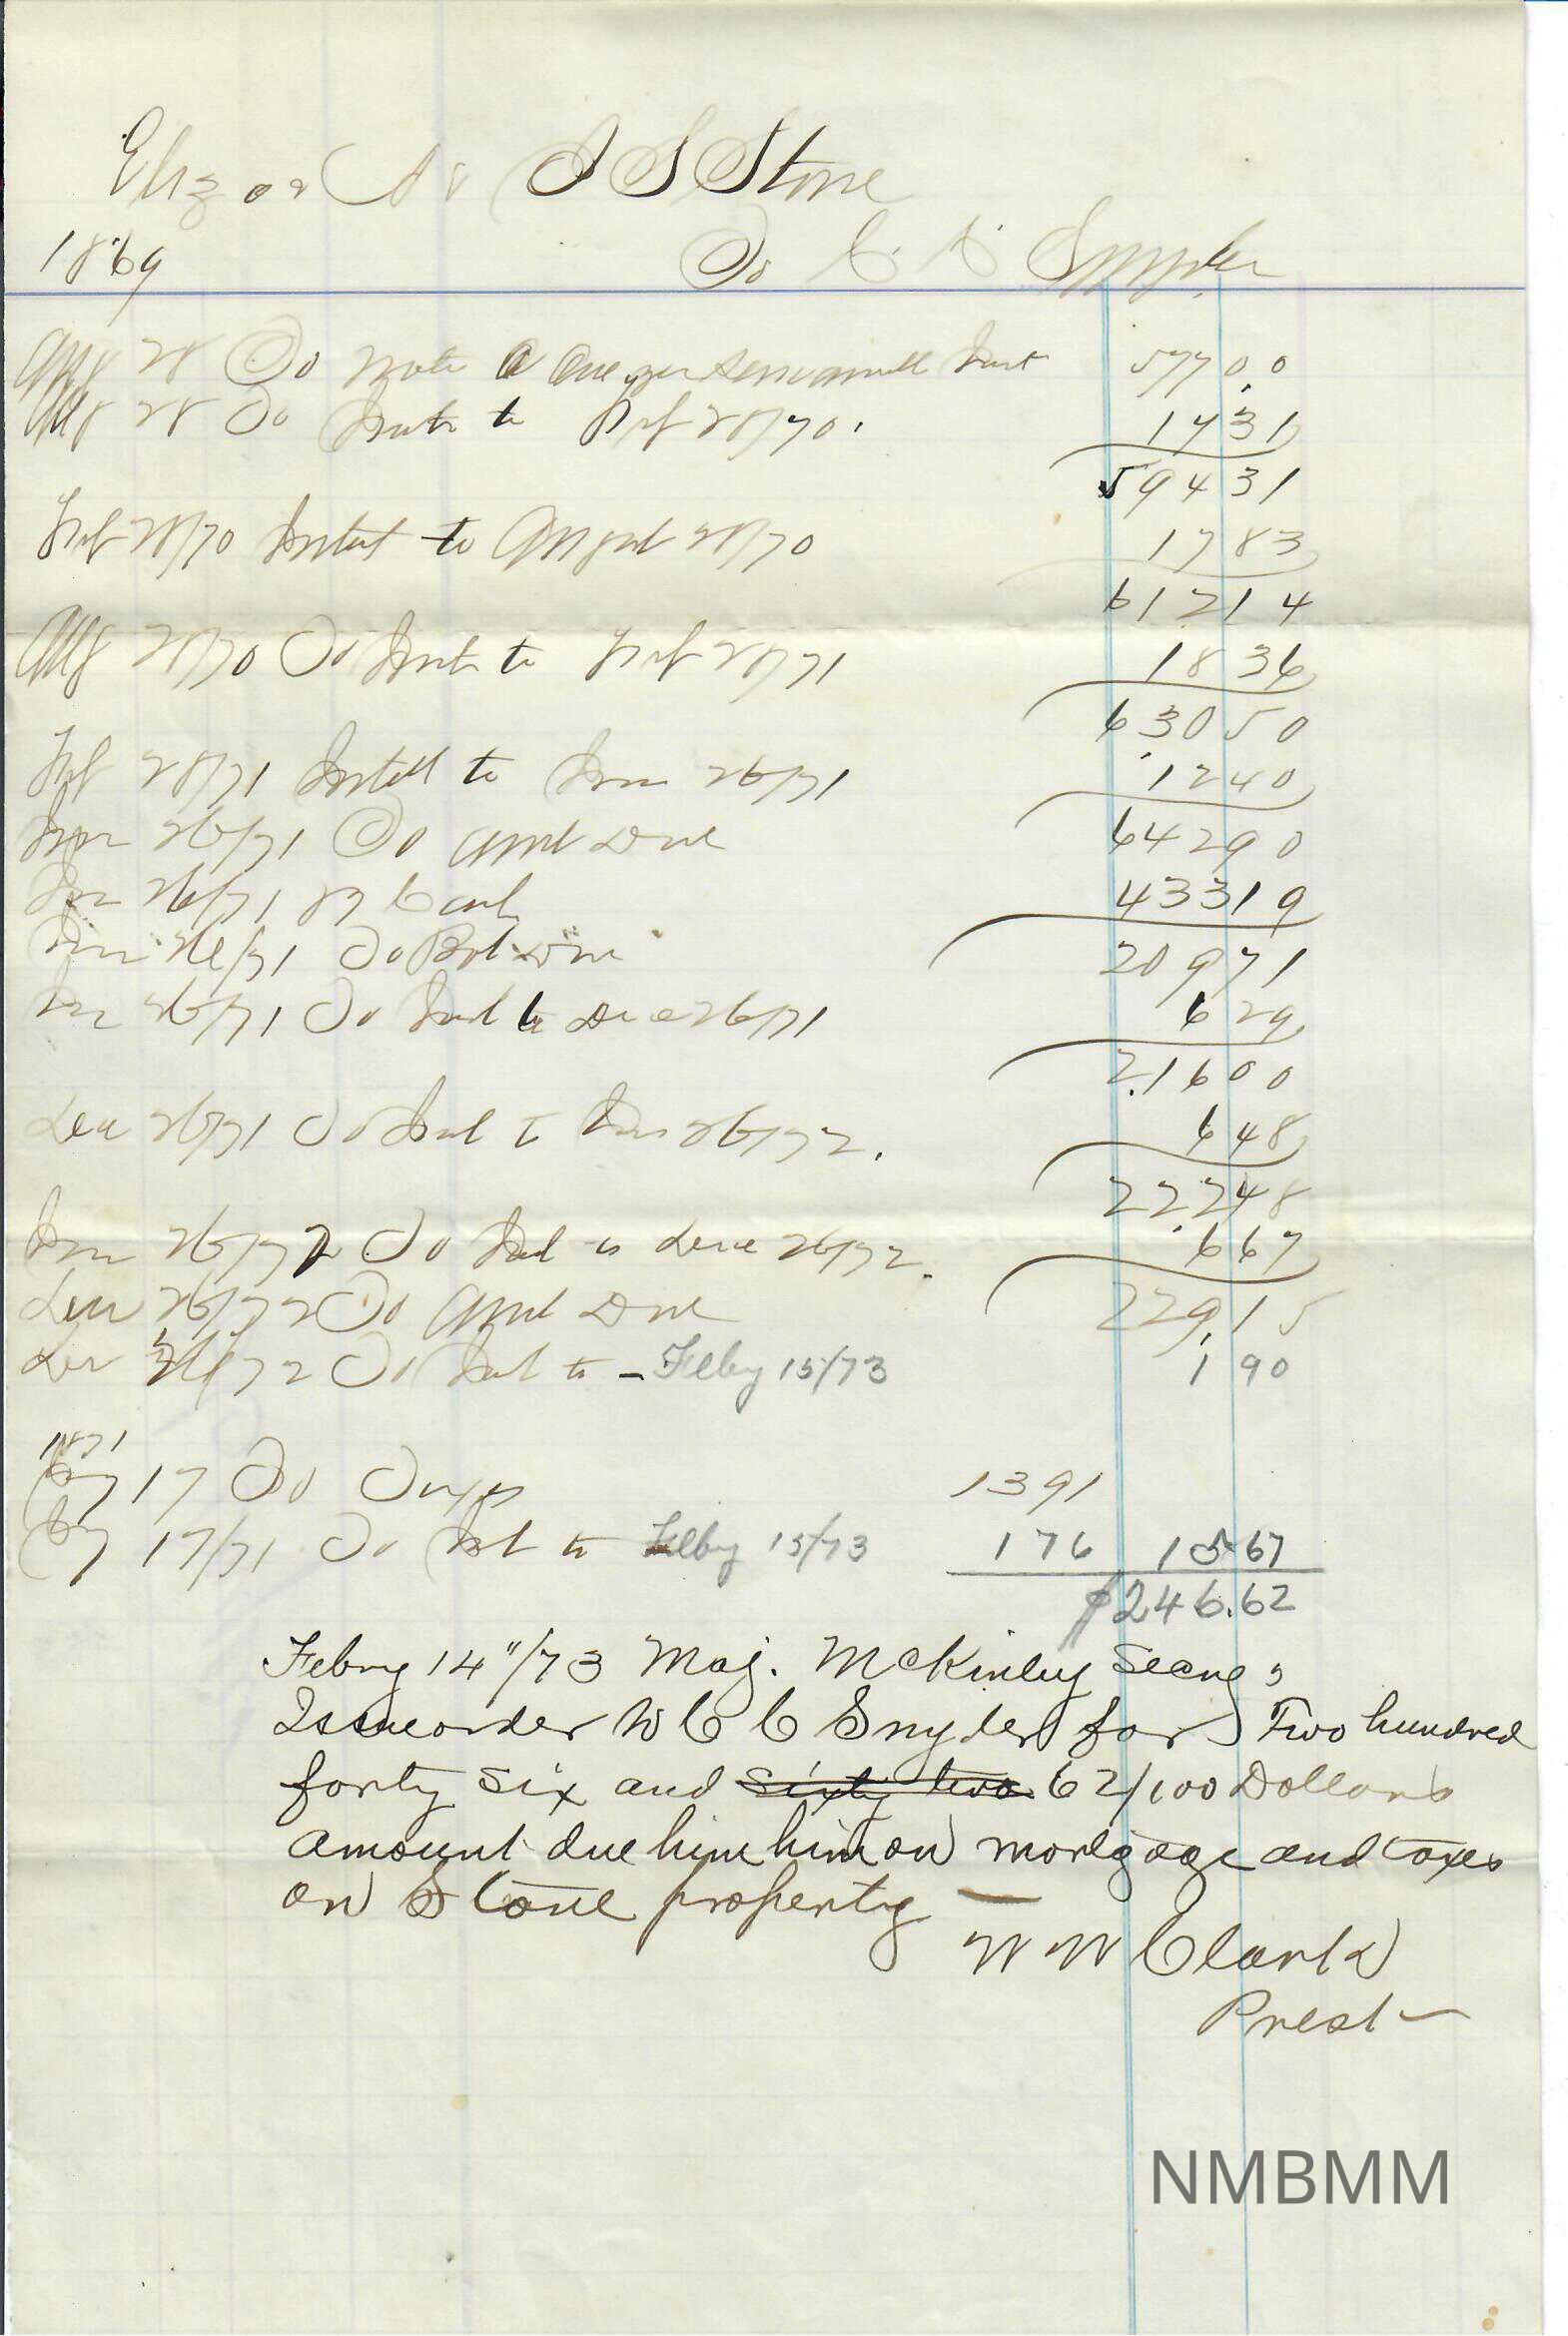 J S Stone
1869 To C C Snyder
Aug 28 To Note due semiannual Inst 577 00
Aug 28 To Inst to Feb 28/70. 17 31
594 31
Feb 28/70 Intst to August 28/70 17 83
612 14
Aug 28/70 To Inst to Feb 28/71 18 36
630 50
Feb 28/71 Intst to June 26/71 12 40
June 26/71 To Amt Due 642 90
June 26/71 By Cash 433 19
June 26/71 To Bal Due 209 71
June 26/71 To Inst to Dec 26/71 6 29
216 00
Dec 26/71 To Inst to June 26/72. 6 48
222 48
June 26/72 To Inst to Dece 26/72. 6 67
Dec 26/72 To Amt Due 229 15
Dec 26/72 To Inst to - Feby 15/73 1 90
1871
17 To Taxes 13 91
17/71 To Int to Feby 15/73 1 76 15 67
$246.62
Febry 14"/73 Maj. McKinley Secny
Issue order to C C Snyder for Two hundred
forty six and sixty two 62/100 Dollars
amount due him him on mortgage and taxes
on Stone property —
W W Clark
Prest
NMBMM